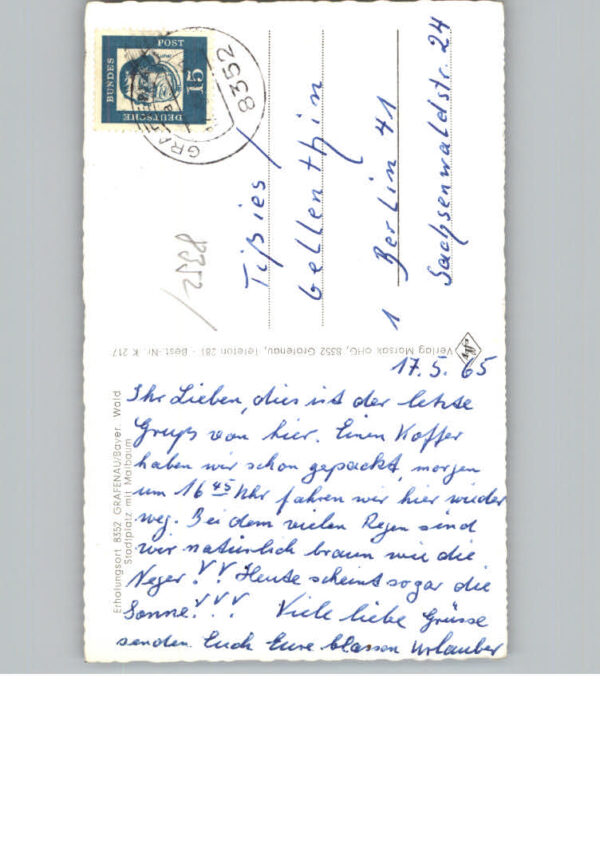 DEUTSCHE
BUNDES
POST
15
8352
8352
Tißies/
Gellenthin
1 Berlin 41
Sachsenwaldstr. 24
Verlag Morsak oHG, 8352 Grafenau, Telefon 281 - Best.-Nr. K 217
Erholungsort 8352 GRAFENAU/Bayer. Wald
Stadtplatz mit Maibaum
17.5.65
Ihr Lieben, dies ist der letzte
Gruß von hier. Einen Koffer
haben wir schon gepackt, morgen
um 16 45 Uhr fahren wir hier wieder
weg. Bei dem vielen Regen sind
wir natürlich braun wie die
Neger!!! Heute scheint sogar die
Sonne!!! Viele liebe Grüsse
senden Euch Eure blassen Urlauber